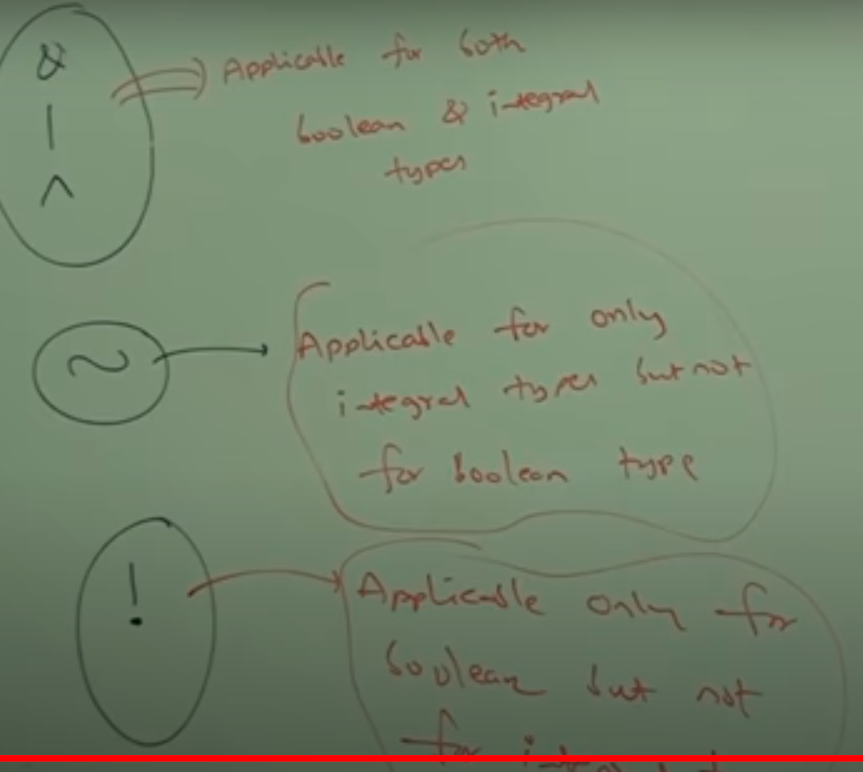 &
|
^
Applicable for both
boolean & integral
types
~
Applicable for only
integral types but not
for boolean type
!
Applicable only for
boolean but not
for